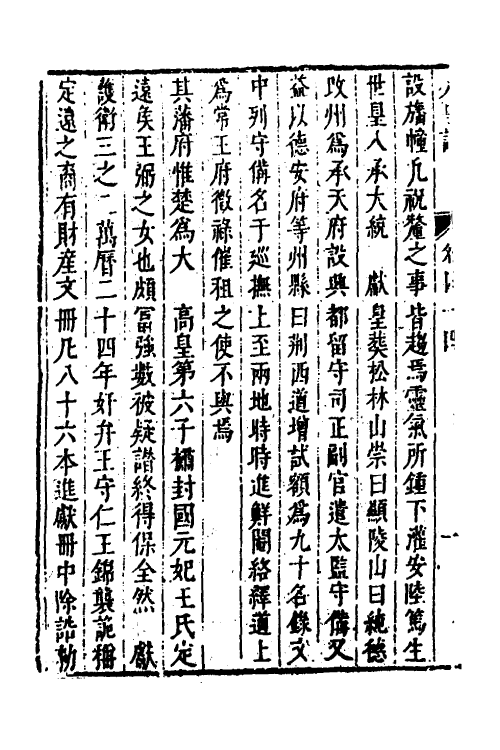 設旛幢凡祝釐之事皆趨焉靈氣所鍾下灌安陸篤生
世皇入承大統　獻皇葬松林山崇曰顯陵山曰純德
改州為承天府設興都留守司正副官遣太監守備又
益以德安府等州縣曰荊西道增試額為九十名錄文
中列守備名于巡撫上至兩地時時進鮮閹絡繹道上
為常王府徵祿催租之使不與焉
其藩府惟楚為大　高皇第六子楯封國元妃王氏定
遠矦王弼之女也頗富強數被疑譖終得保全然　獻
護衛三之二萬曆二十四年奸弁王守仁王錦襲詭稱
定遠之裔有財產文冊凡八十六本進獻冊中除誥勅